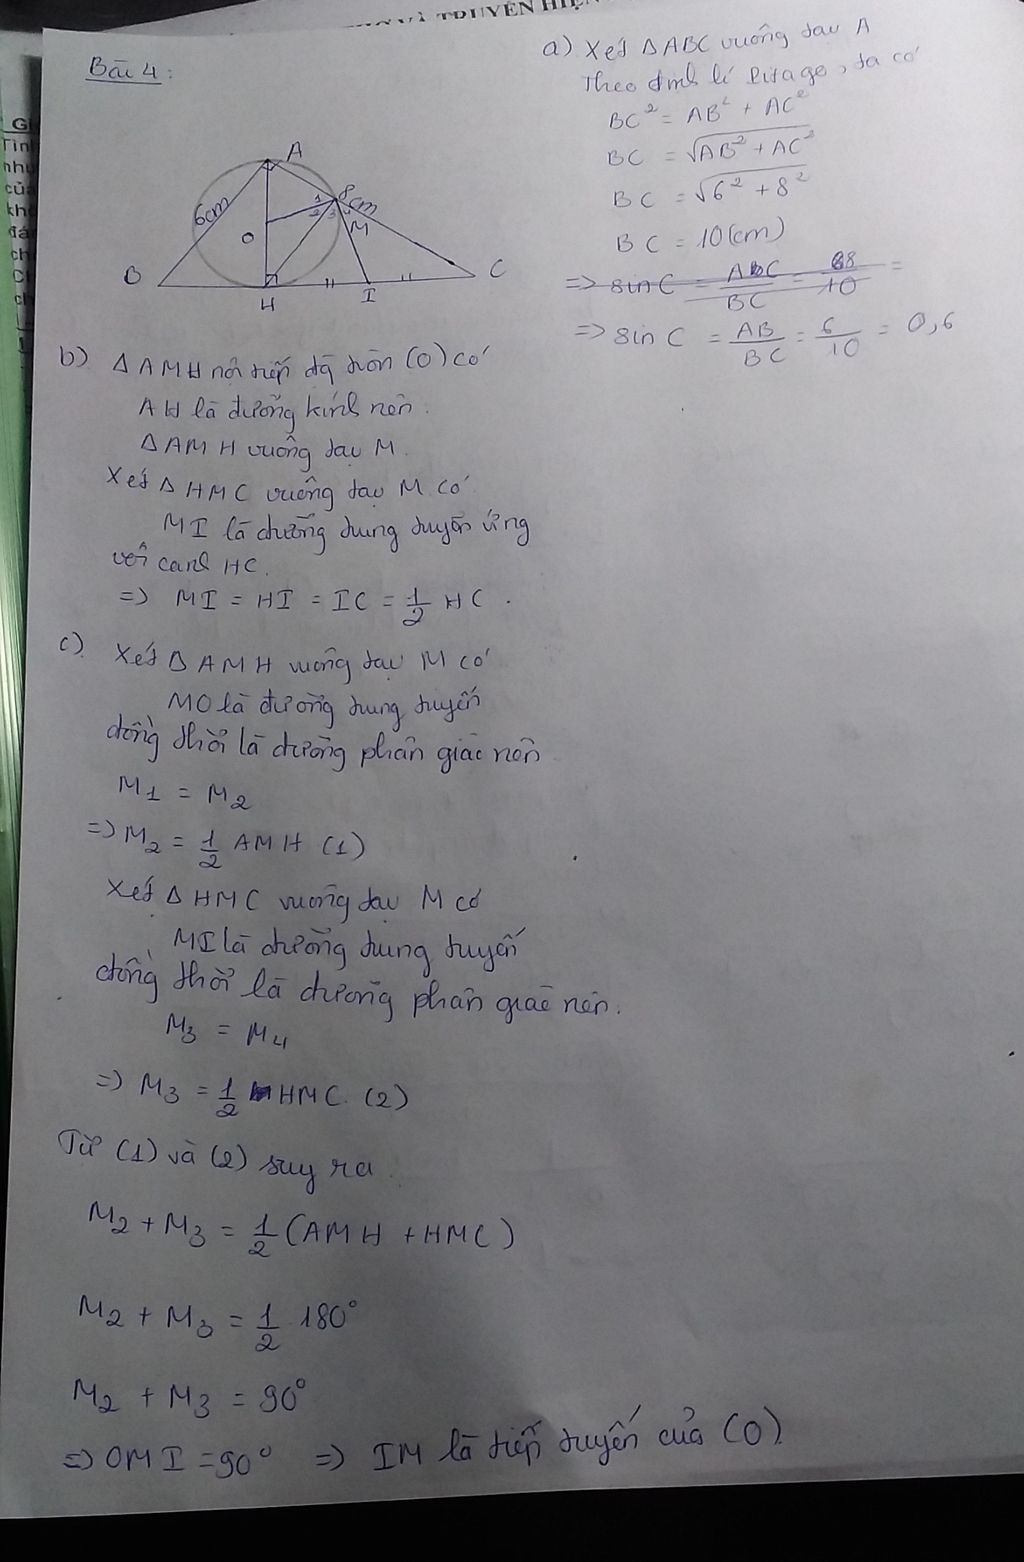 VÀ TRUYỀN HIỆ
Bài 4:
A
6cm
8cm
1
2
3
4
M
O
B
H
I
C
a) Xét ΔABC vuông tại A
Theo định lí Pitago, ta có
BC² = AB² + AC²
BC = √AB² + AC²
BC = √6² + 8²
BC = 10(cm)
=> sin C = AC/BC = 8/10 =
=> sin C = AB/BC = 6/10 = 0,6
b) Δ AMH nội tiếp đg tròn (O) có
AH là đường kính nên.
Δ AMH vuông tại M.
Xét Δ HMC vuông tại M có
MI là đường trung tuyến ứng
với cạnh HC.
=> MI = HI = IC = 1/2 HC.
c). Xét Δ AMH vuông tại M có
MO là đường trung tuyến
đồng thời là đường phân giác nên
M₁ = M₂
=> M₂ = 1/2 AMH (1)
Xét Δ HMC vuông tại M có
MI là đường trung tuyến
đồng thời là đường phân giác nên.
M₃ = M₄
=> M₃ = 1/2 HMC. (2)
Từ (1) và (2) suy ra.
M₂ + M₃ = 1/2 (AMH + HMC)
M₂ + M₃ = 1/2 180°
M₂ + M₃ = 90°
=> OMI = 90° => IM là tiếp tuyến của (O)